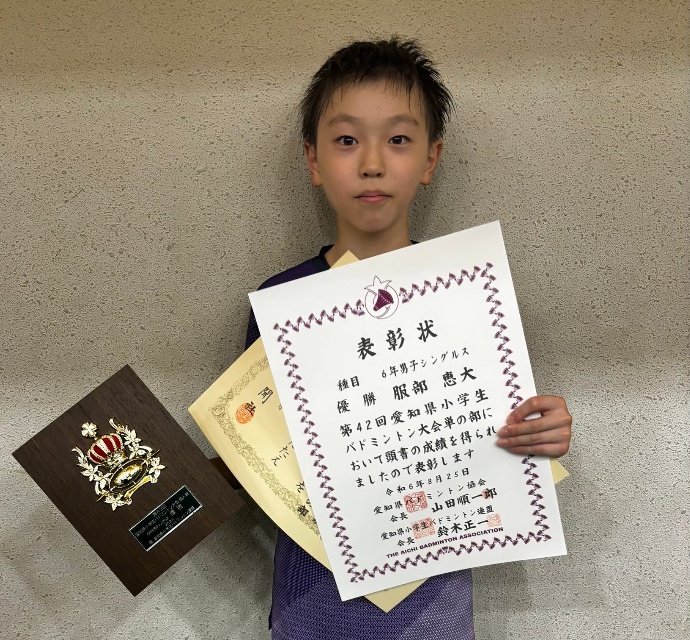 表彰状
種目 6年男子シングルス
優勝 服部 恵大
第42回愛知県小学生
バドミントン大会単の部に
おいて頭書の成績を得られ
ましたので表彰します
令和6年8月25日
愛知県バドミントン協会
会長 山田順一郎
愛知県小学生バドミントン連盟
会長 鈴木正一
THE AICHI BADMINTON ASSOCIATION